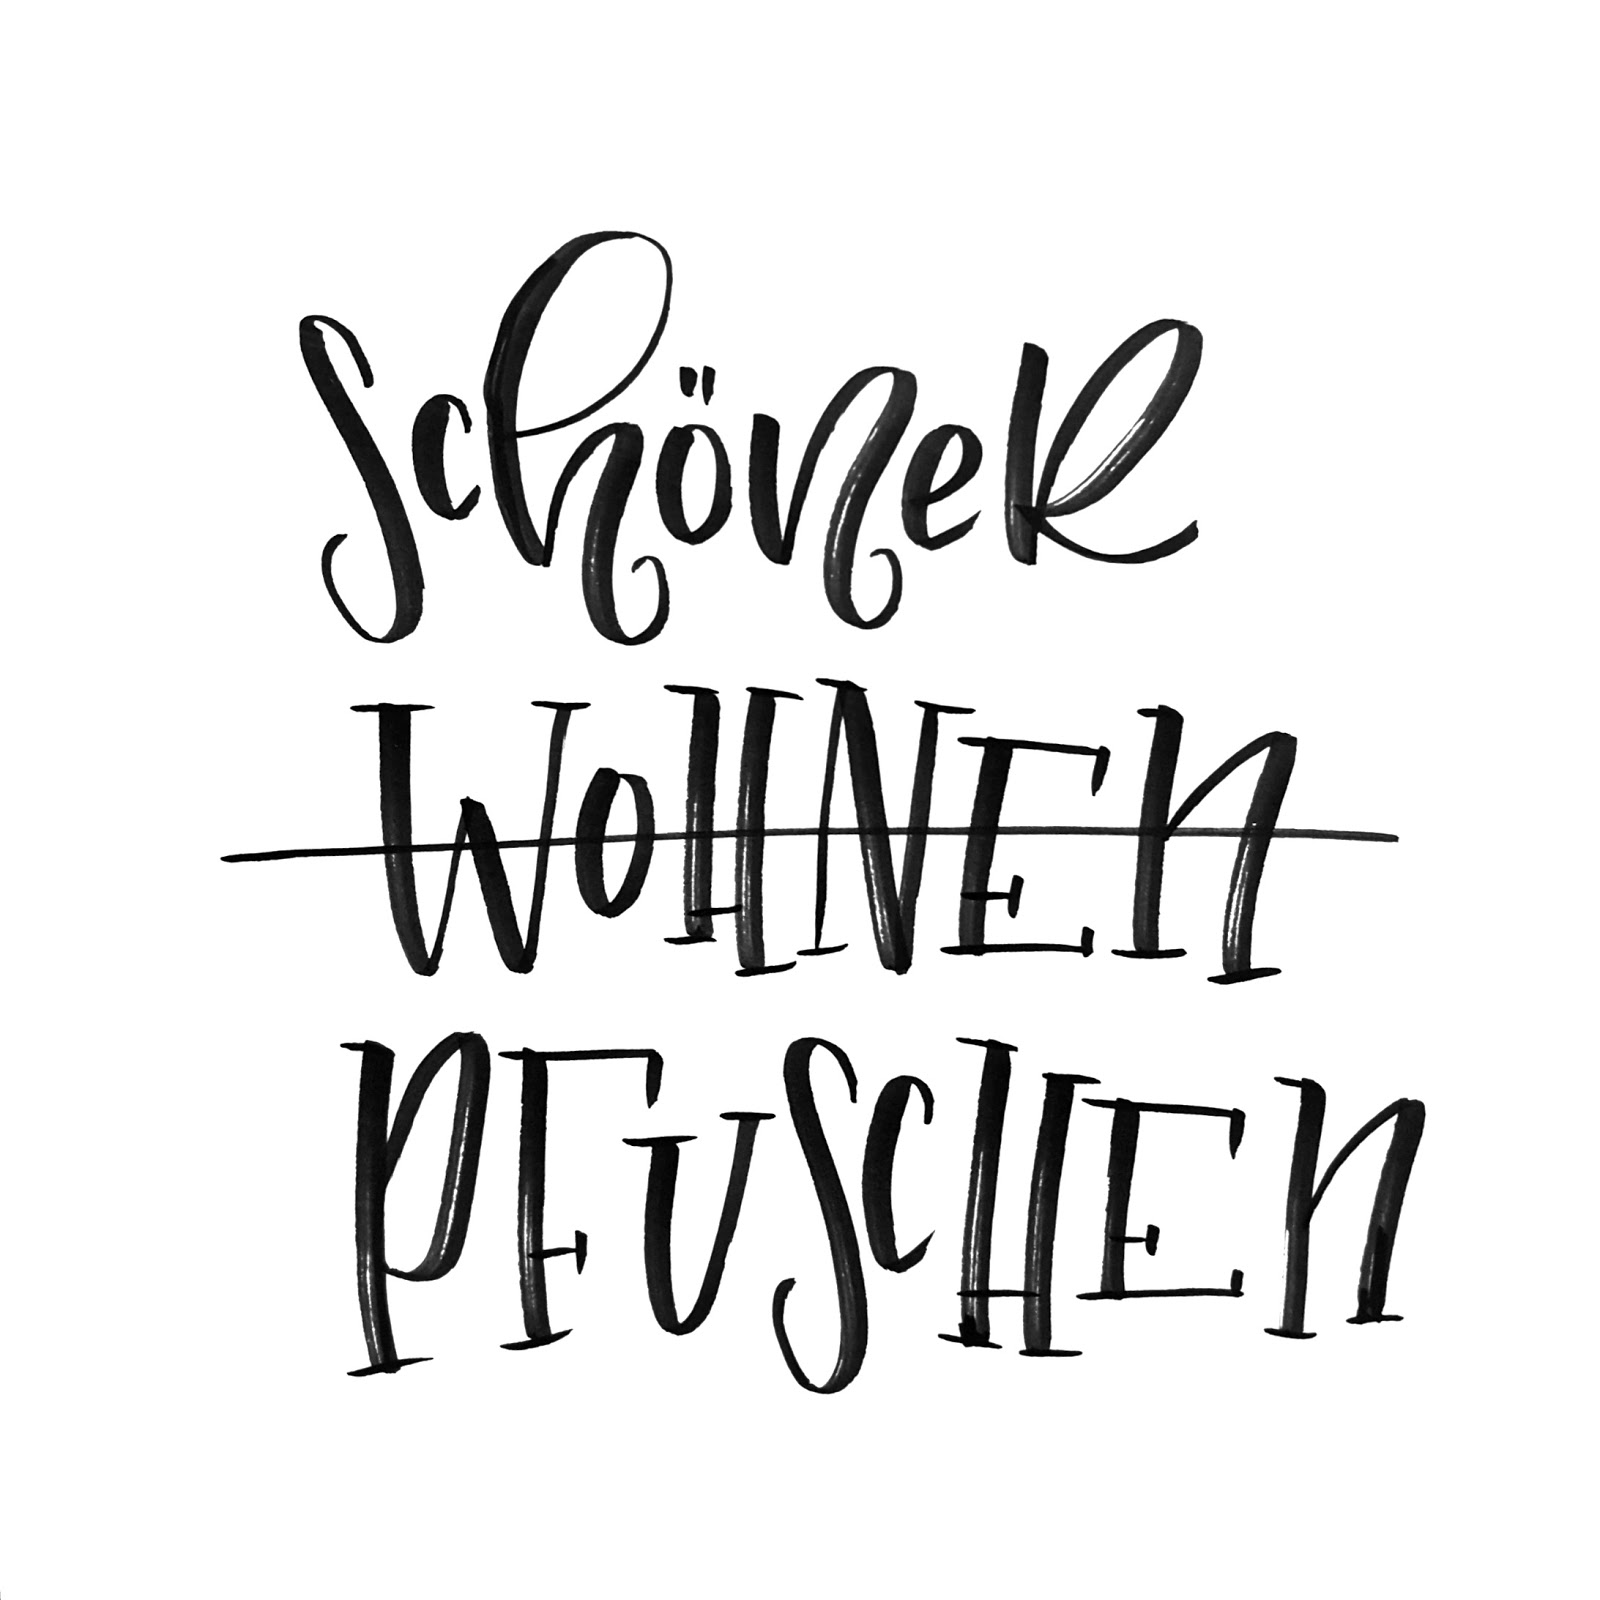 schöneR
WoHNEn
PFUSCHEn